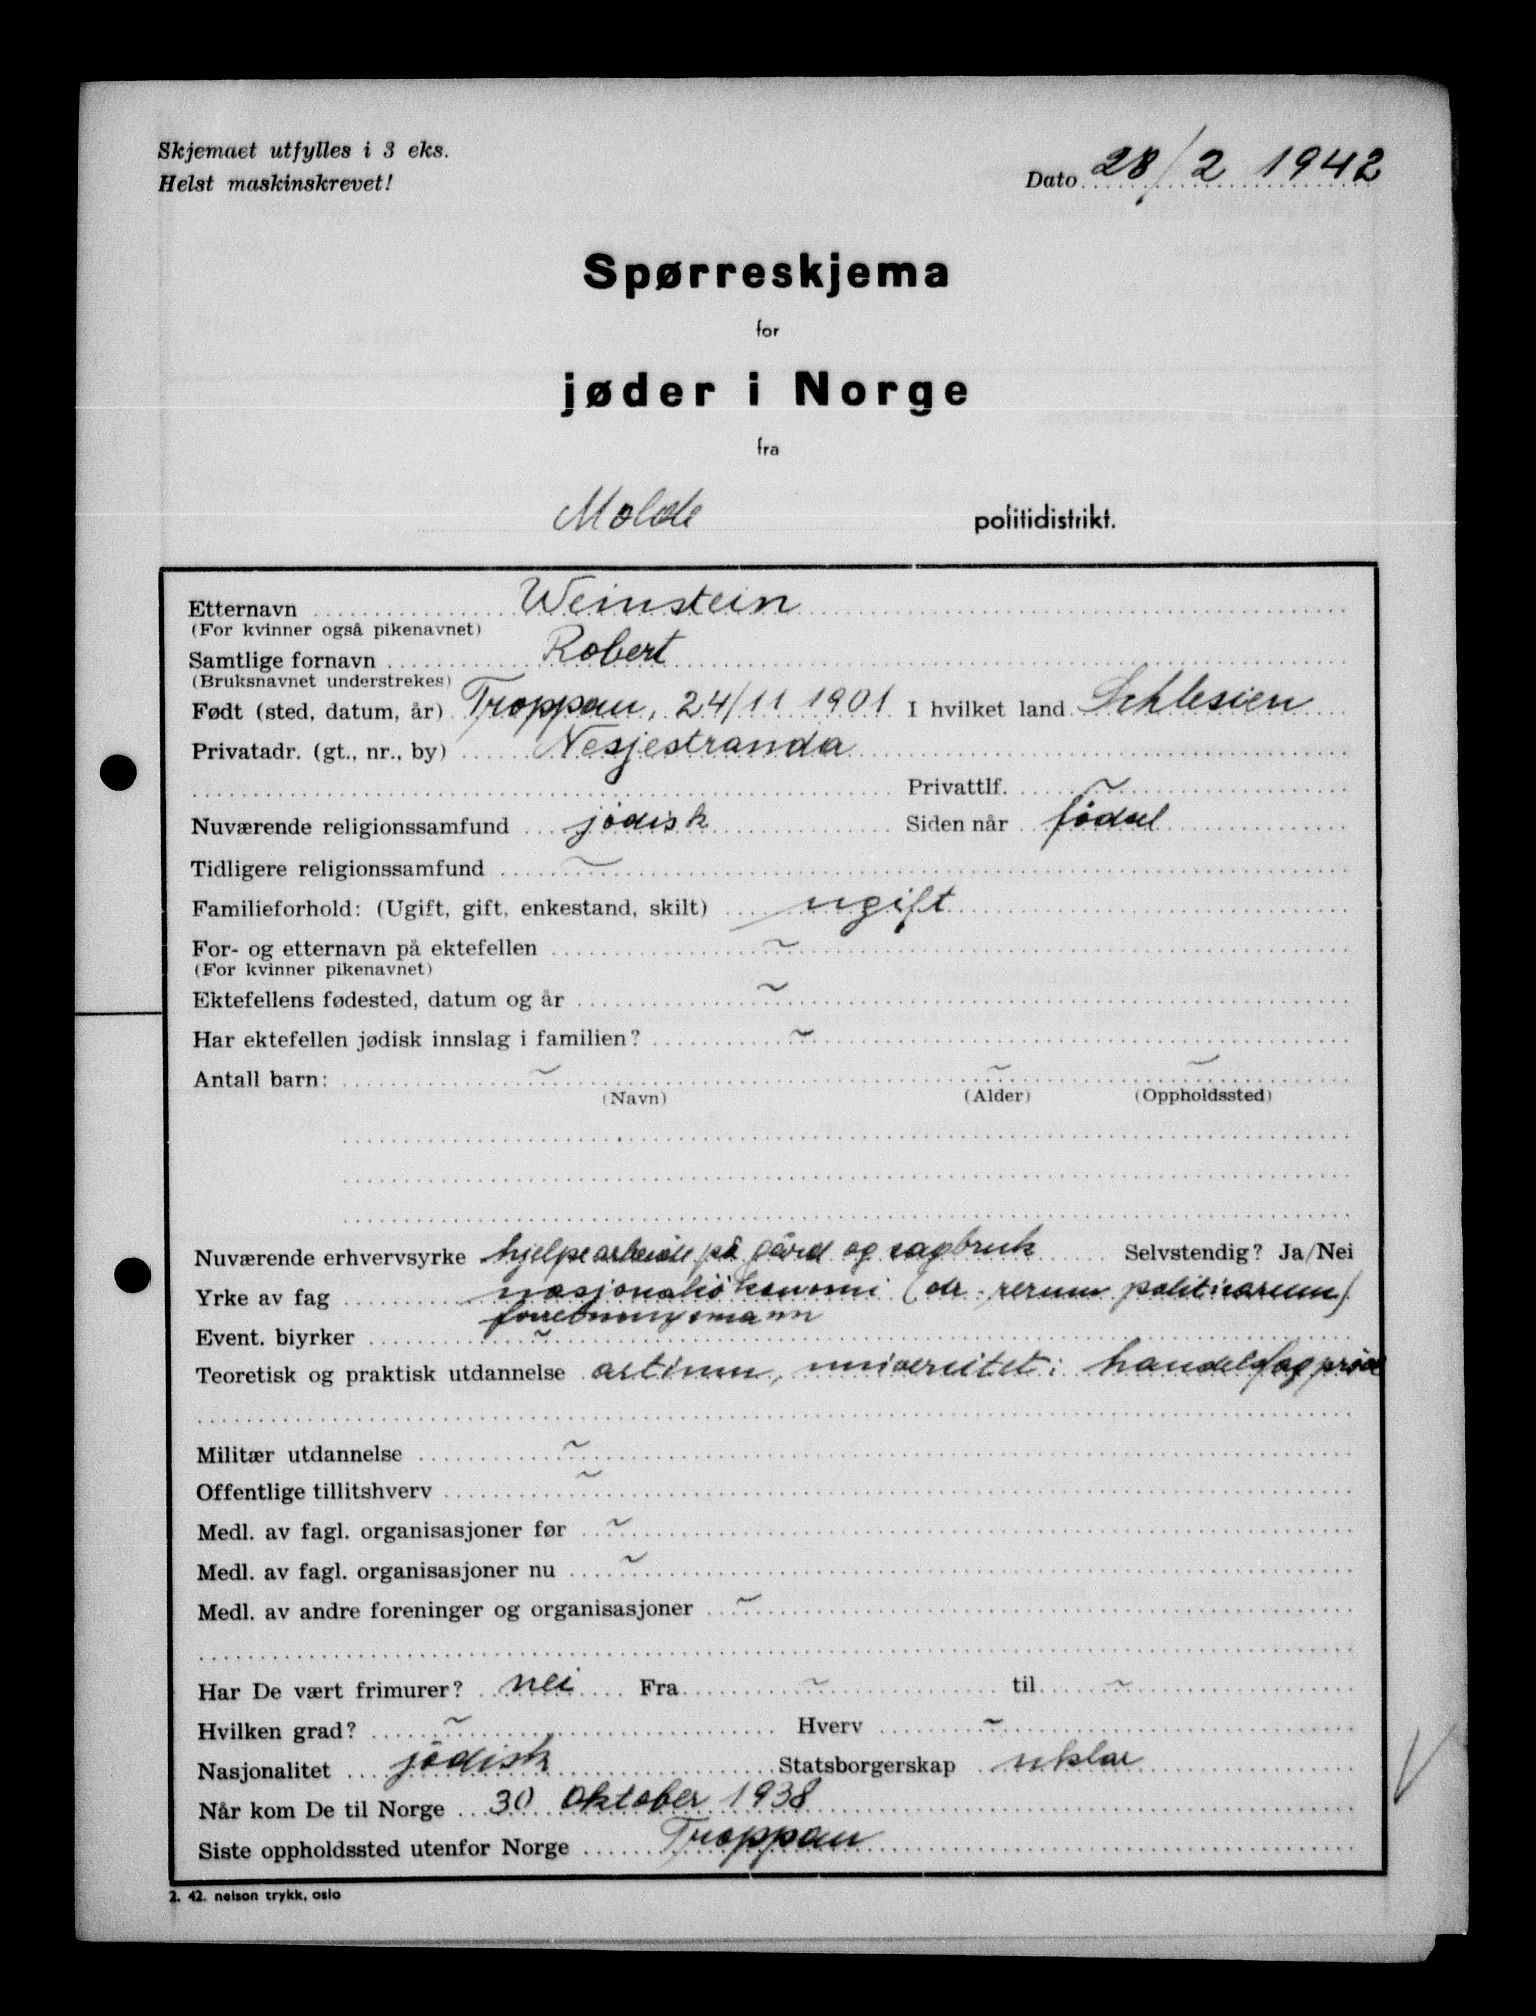 Skjemaet utfylles i 3 eks.
Helst maskinskrevet!
Dato 28/2 1942
Spørreskjema
for
jøder i Norge
fra
Molde politidistrikt.
Etternavn Weinstein
(For kvinner også pikenavnet)
Samtlige fornavn Robert
(Bruksnavnet understrekes)
Født (sted, datum, år) Troppau, 24/11 1901 I hvilket land Schlesien
Privatadr. (gt., nr., by) Nesjestranda
Privattlf. ~
Nuværende religionssamfund jødisk Siden når fødsel
Tidligere religionssamfund ~
Familieforhold: (Ugift, gift, enkestand, skilt) ugift
For- og etternavn på ektefellen ~
(For kvinner pikenavnet)
Ektefellens fødested, datum og år ~
Har ektefellen jødisk innslag i familien? ~
Antall barn: ~ ~ ~
(Navn) (Alder) (Oppholdssted)
Nuværende erhvervsyrke hjelpearbeide på gård og sagbruk Selvstendig? Ja/Nei
Yrke av fag nasjonaløkonomi (dr. rerum politicarum)
forretningsmann
Event. biyrker ~
Teoretisk og praktisk utdannelse artium, universitet; handelsfagprøve
Militær utdannelse ~
Offentlige tillitshverv ~
Medl. av fagl. organisasjoner før ~
Medl. av fagl. organisasjoner nu ~
Medl. av andre foreninger og organisasjoner ~
Har De vært frimurer? nei Fra ~ til ~
Hvilken grad? ~ Hverv ~
Nasjonalitet jødisk Statsborgerskap uklar
Når kom De til Norge 30 oktober 1938
Siste oppholdssted utenfor Norge Troppau
2. 42. nelson trykk, oslo